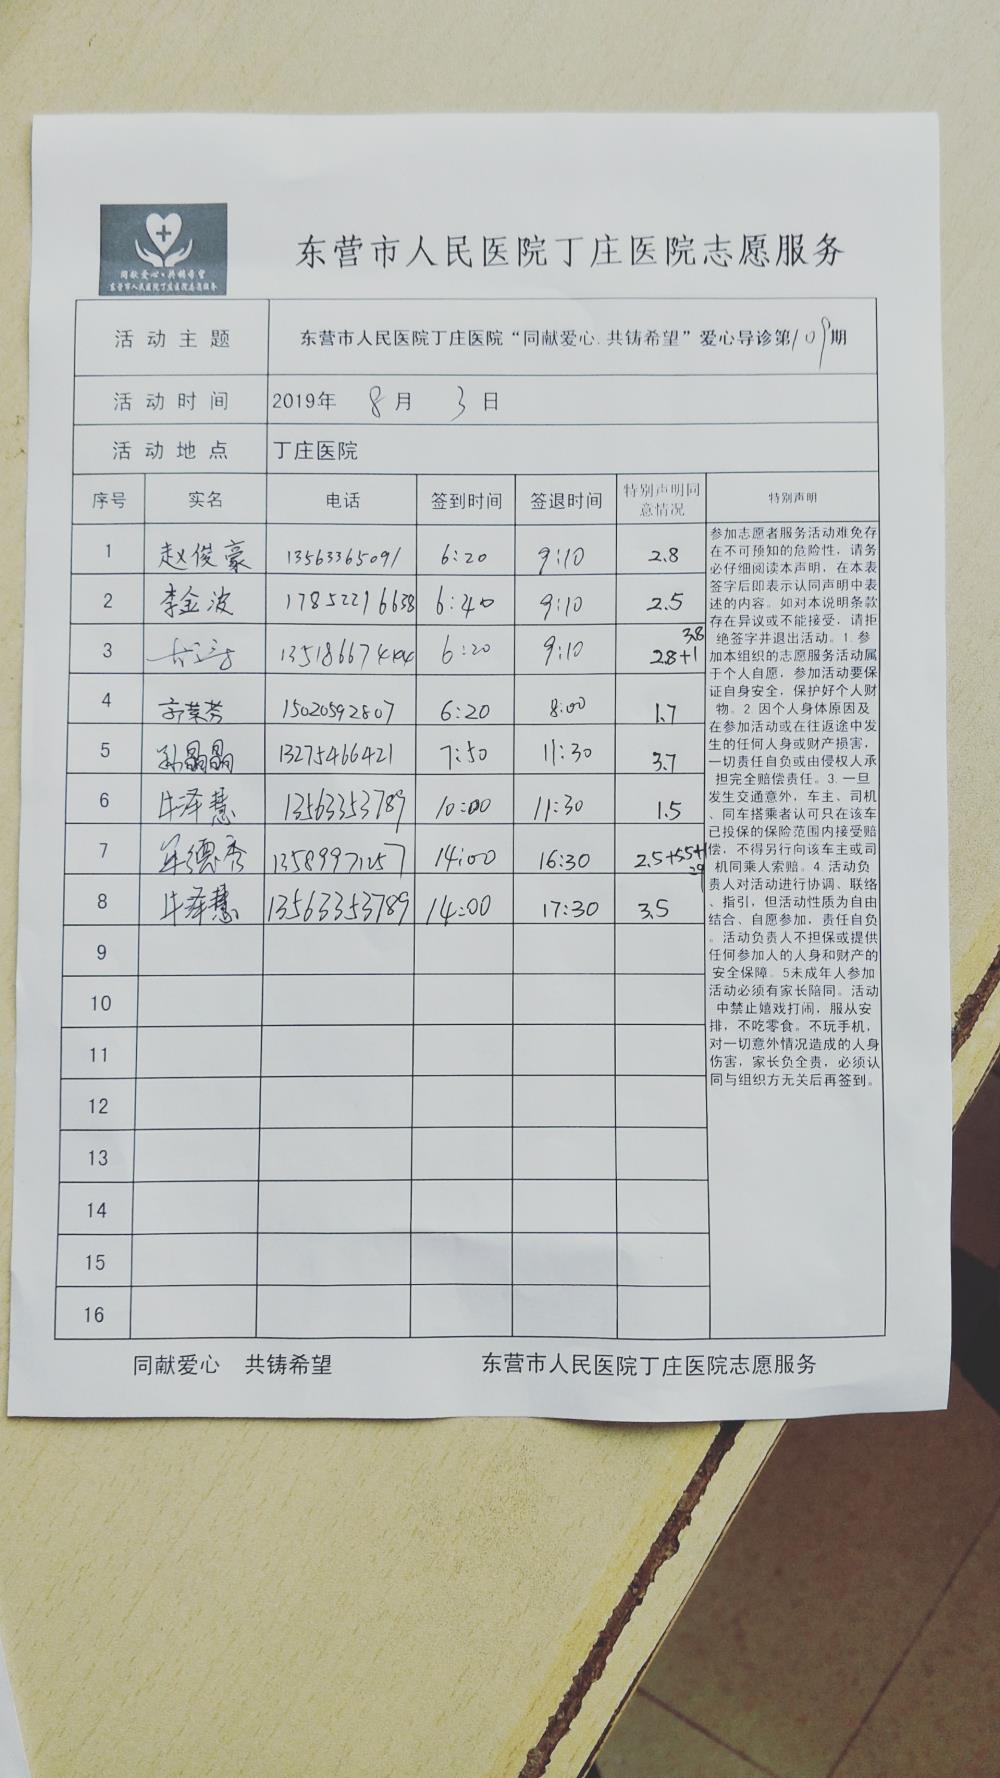 同献爱心·共铸希望
东营市人民医院丁庄医院志愿服务
东营市人民医院丁庄医院志愿服务
活动主题 东营市人民医院丁庄医院“同献爱心.共铸希望”爱心导诊第109期
活动时间 2019年 8月 3日
活动地点 丁庄医院
序号 实名 电话 签到时间 签退时间 特别声明同意情况 特别声明
1 赵俊豪 13563365091 6:20 9:10 2.8
2 李金波 17852296638 6:40 9:10 2.5
3 6:20 9:10 2.8+1 3.8
4 15020592807 6:20 8:00 1.7
5 孙晶晶 13275466421 7:50 11:30 3.7
6 牛泽慧 13563353789 10:00 11:30 1.5
7 德秀 13589971257 14:00 16:30
8 牛泽慧 13563353789 14:00 17:30 3.5
9
10
11
12
13
14
15
16
参加志愿者服务活动难免存
在不可预知的危险性，请务
必仔细阅读本声明，在本表
签字后即表示认同声明中表
述的内容。如对本说明条款
存在异议或不能接受，请拒
绝签字并退出活动。1.参
加本组织的志愿服务活动属
于个人自愿，参加活动要保
证自身安全，保护好个人财
物。2.因个人身体原因及
在参加活动或在往返途中发
生的任何人身或财产损害，
一切责任自负或由侵权人承
担完全赔偿责任。3.一旦
发生交通意外，车主、司机
、同车搭乘者认可只在该车
已投保的保险范围内接受赔
偿，不得另行向该车主或司
机同乘人索赔。4.活动负
责人对活动进行协调、联络
、指引，但活动性质为自由
结合、自愿参加，责任自负
。活动负责人不担保或提供
任何参加人的人身和财产的
安全保障。5未成年人参加
活动必须有家长陪同。活动
中禁止嬉戏打闹，服从安
排，不吃零食。不玩手机，
对一切意外情况造成的人身
伤害，家长负全责，必须认
同与组织方无关后再签到。
同献爱心 共铸希望 东营市人民医院丁庄医院志愿服务